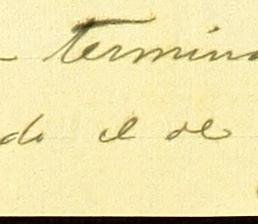 termina
do el de